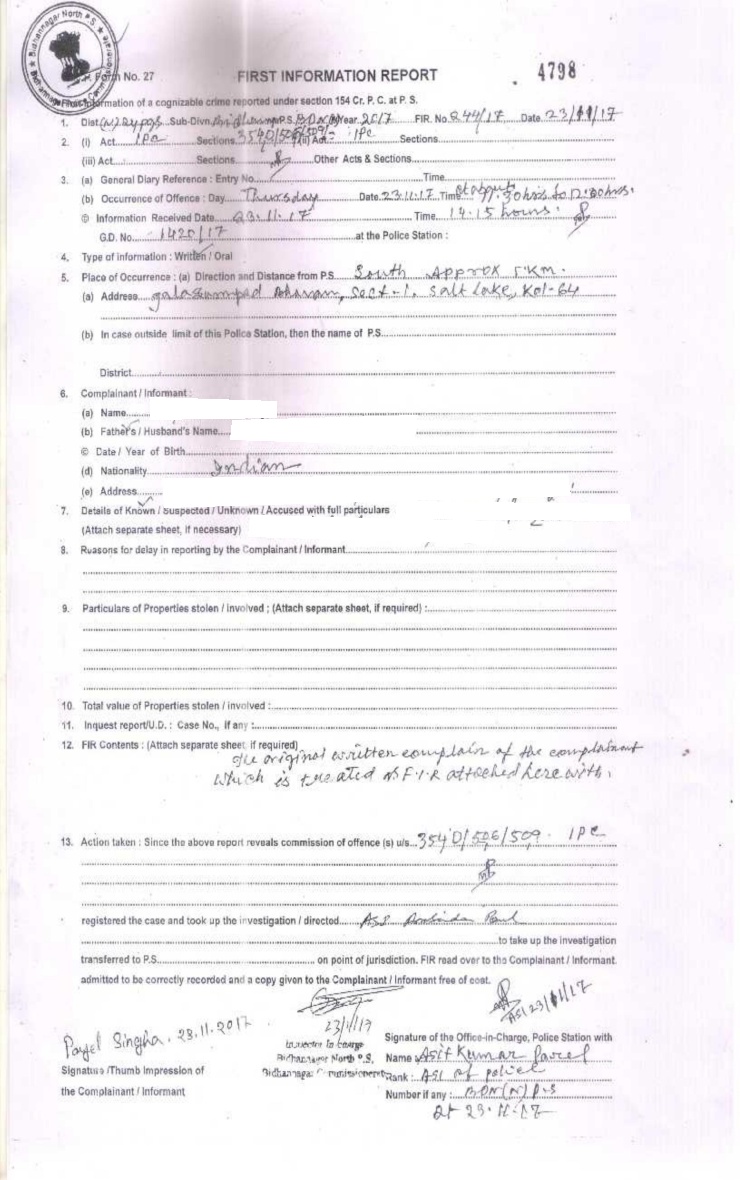 Bidhannagar North P.S.
Form No. 27
FIRST INFORMATION REPORT
4798
First Information of a cognizable crime reported under section 154 Cr. P. C. at P. S.
1. Dist (N) 24 pgs Sub-Divn. Bidhannagar P.S. BDN(N) Year 2017 FIR. No 244/17 Date 23/11/17
2. (i) Act IPC Sections 354D/506/509 (ii) Act IPC Sections
(iii) Act Sections Other Acts & Sections
3. (a) General Diary Reference : Entry No. Time
(b) Occurrence of Offence : Day Thursday Date 23.11.17 Time at about 30 hrs to hrs.
© Information Received Date 23.11.17 Time 14.15 hours.
G.D. No. 1420/17 at the Police Station :
4. Type of information : Written / Oral
5. Place of Occurrence : (a) Direction and Distance from P.S South Approx 1 KM.
(a) Address Sect-1, Salt Lake, Kol-64
(b) In case outside limit of this Police Station, then the name of P.S
District
6. Complainant / Informant :
(a) Name
(b) Father's / Husband's Name
© Date / Year of Birth
(d) Nationality Indian
(e) Address
7. Details of Known / Suspected / Unknown / Accused with full particulars
(Attach separate sheet, if necessary)
8. Reasons for delay in reporting by the Complainant / Informant
9. Particulars of Properties stolen / involved ; (Attach separate sheet, if required) :
10. Total value of Properties stolen / involved :
11. Inquest report/U.D. : Case No., if any :
12. FIR Contents : (Attach separate sheet, if required)
The original written complain of the complainant
which is treated as F.I.R attached here with.
13. Action taken : Since the above report reveals commission of offence (s) u/s 354D/506/509 IPC
registered the case and took up the investigation / directed ASI Paul
to take up the investigation
transferred to P.S. on point of jurisdiction. FIR read over to the Complainant / Informant,
admitted to be correctly recorded and a copy given to the Complainant / Informant free of cost.
ASI 23/11/17
23/11/17
Payel Singha. 23.11.2017
Inspector In charge
Bidhannagar North P.S.
Bidhannagar Commissionerate
Signature /Thumb Impression of
the Complainant / Informant
Signature of the Office-in-Charge, Police Station with
Name : Asit Kumar
Rank : ASI of police
Number if any : BDN(N) P.S
dt 23.11.17